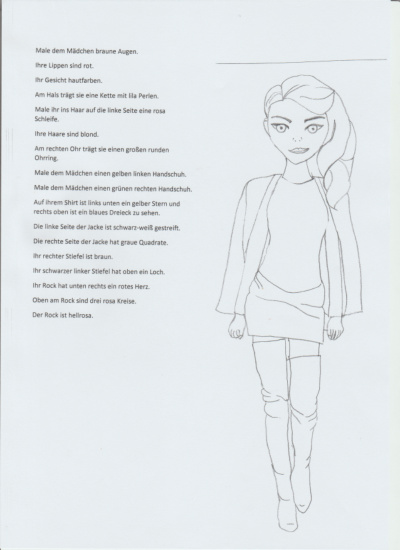 Male dem Mädchen braune Augen.
Ihre Lippen sind rot.
Ihr Gesicht hautfarben.
Am Hals trägt sie eine Kette mit lila Perlen.
Male ihr ins Haar auf die linke Seite eine rosa
Schleife.
Ihre Haare sind blond.
Am rechten Ohr trägt sie einen großen runden
Ohrring.
Male dem Mädchen einen gelben linken Handschuh.
Male dem Mädchen einen grünen rechten Handschuh.
Auf ihrem Shirt ist links unten ein gelber Stern und
rechts oben ist ein blaues Dreieck zu sehen.
Die linke Seite der Jacke ist schwarz-weiß gestreift.
Die rechte Seite der Jacke hat graue Quadrate.
Ihr rechter Stiefel ist braun.
Ihr schwarzer linker Stiefel hat oben ein Loch.
Ihr Rock hat unten rechts ein rotes Herz.
Oben am Rock sind drei rosa Kreise.
Der Rock ist hellrosa.